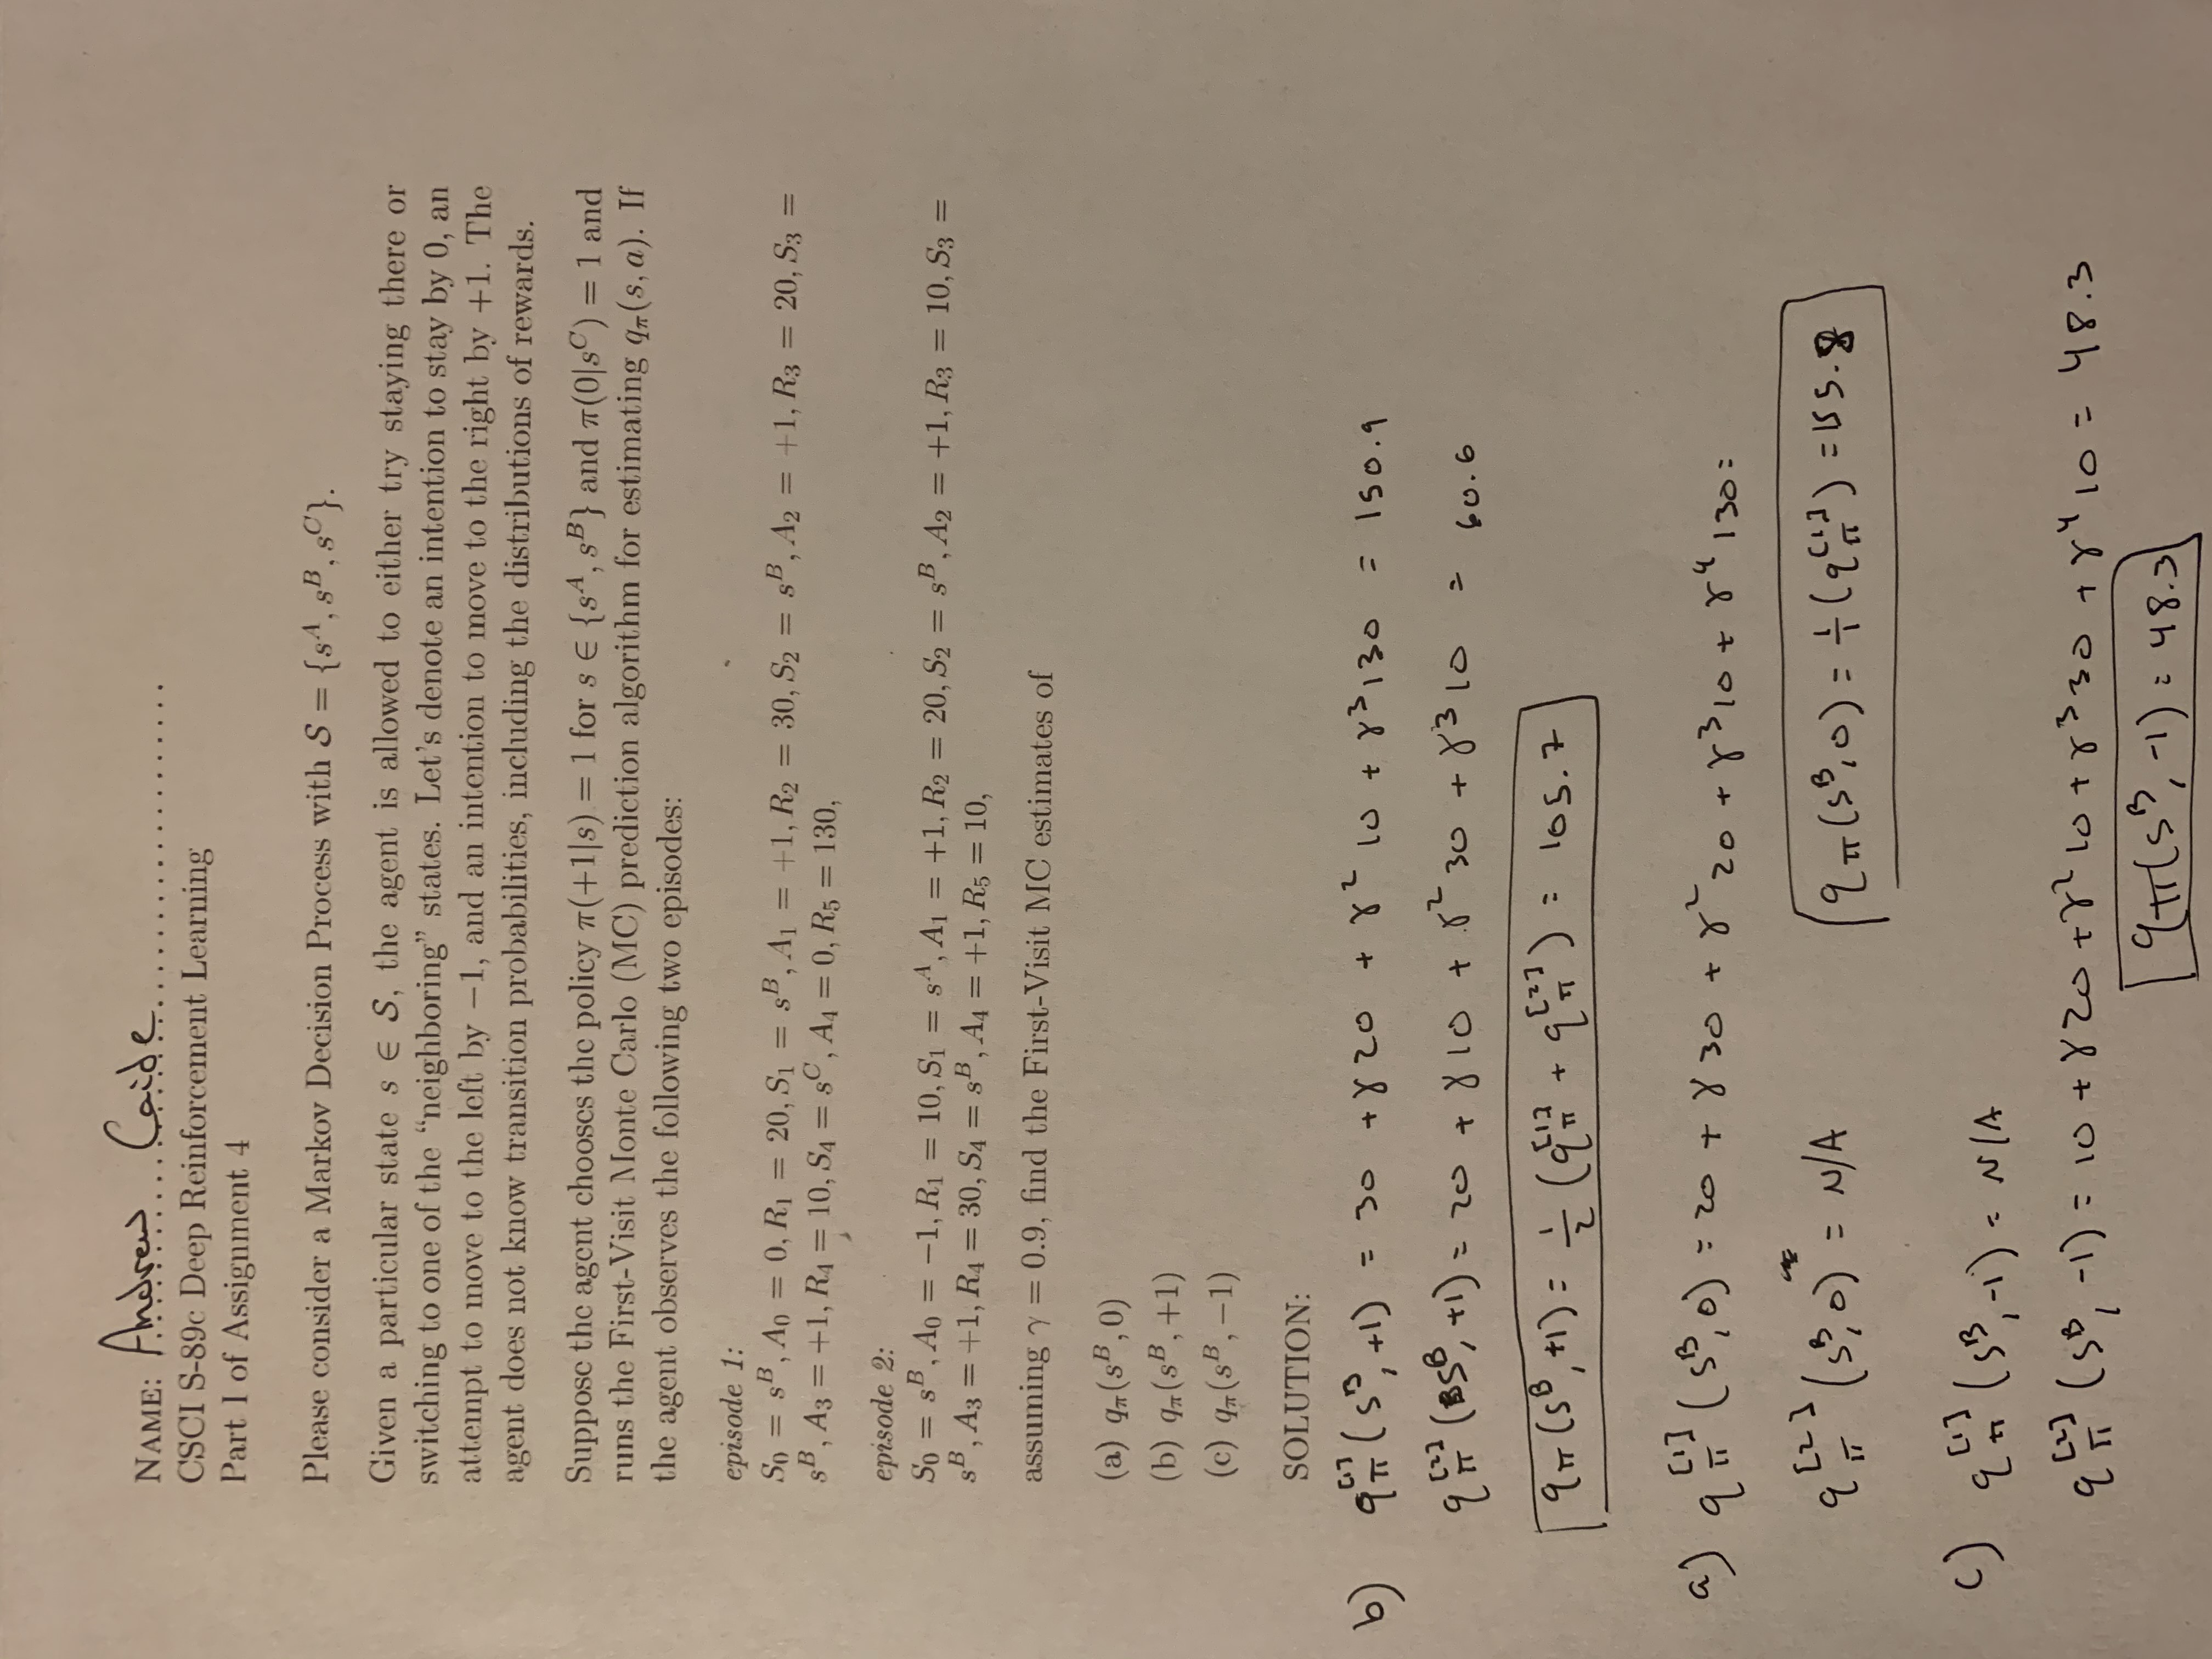 NAME: Andrew Caide
CSCI S-89c Deep Reinforcement Learning
Part I of Assignment 4
Please consider a Markov Decision Process with 𝒮 = {s^A, s^B, s^C}.
Given a particular state s ∈ 𝒮, the agent is allowed to either try staying there or
switching to one of the “neighboring” states. Let’s denote an intention to stay by 0, an
attempt to move to the left by −1, and an intention to move to the right by +1. The
agent does not know transition probabilities, including the distributions of rewards.
Suppose the agent chooses the policy π(+1|s) = 1 for s ∈ {s^A, s^B} and π(0|s^C) = 1 and
runs the First-Visit Monte Carlo (MC) prediction algorithm for estimating q_π(s, a). If
the agent observes the following two episodes:
episode 1:
S_0 = s^B, A_0 = 0, R_1 = 20, S_1 = s^B, A_1 = +1, R_2 = 30, S_2 = s^B, A_2 = +1, R_3 = 20, S_3 =
s^B, A_3 = +1, R_4 = 10, S_4 = s^C, A_4 = 0, R_5 = 130,
episode 2:
S_0 = s^B, A_0 = −1, R_1 = 10, S_1 = s^A, A_1 = +1, R_2 = 20, S_2 = s^B, A_2 = +1, R_3 = 10, S_3 =
s^B, A_3 = +1, R_4 = 30, S_4 = s^B, A_4 = +1, R_5 = 10,
assuming γ = 0.9, find the First-Visit MC estimates of
(a) q_π(s^B, 0)
(b) q_π(s^B, +1)
(c) q_π(s^B, −1)
SOLUTION:
b) q_π^[1](s^B, +1) = 30 + γ20 + γ^2 10 + γ^3 130 = 150.9
q_π^[2](s^B, +1) = 20 + γ10 + γ^2 30 + γ^3 10 = 60.6
q_π(s^B, +1) = 1/2 (q_π^[1] + q_π^[2]) = 105.7
a) q_π^[1](s^B, 0) = 20 + γ30 + γ^2 20 + γ^3 10 + γ^4 130 =
q_π^[2](s^B, 0) = N/A q_π(s^B, 0) = 1/1 (q_π^[1]) = 155.8
c) q_π^[1](s^B, -1) = N/A
q_π^[2](s^B, -1) = 10 + γ20 + γ^2 10 + γ^3 30 + γ^4 10 = 48.3
q_π(s^B, -1) = 48.3